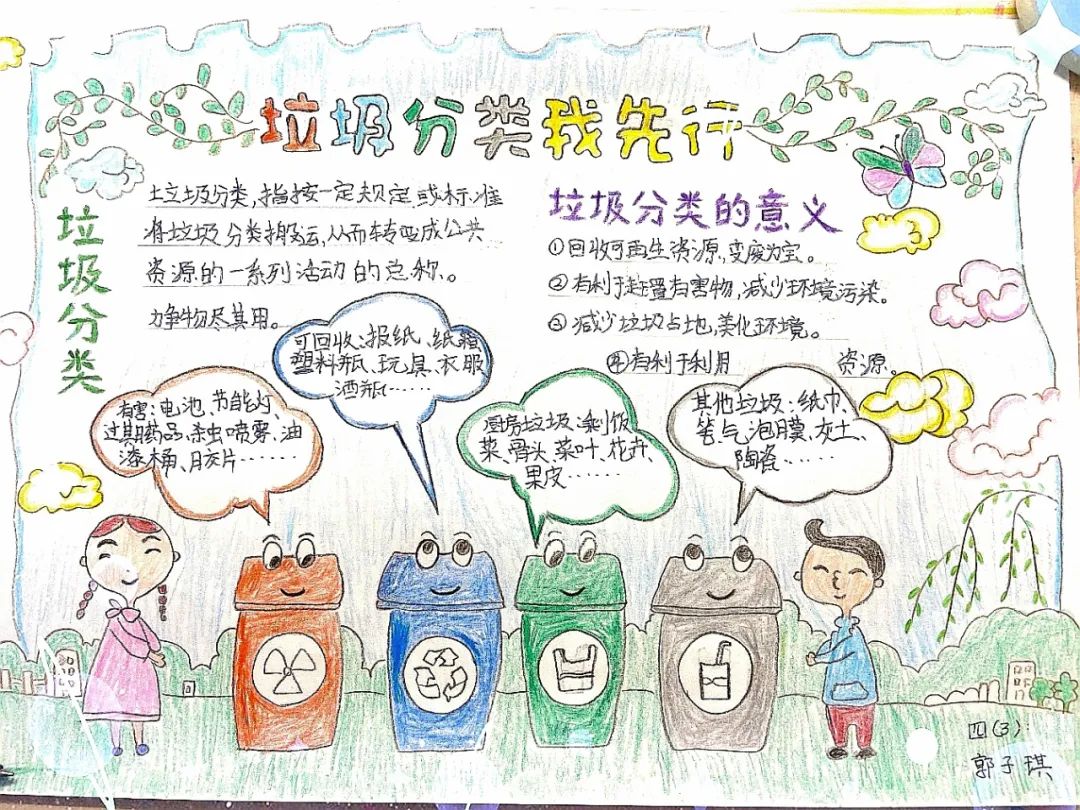 垃圾分类我先行
垃圾分类
垃圾分类,指按一定规定或标准
将垃圾分类搬运,从而转变成公共
资源的一系列活动的总称。
力争物尽其用。
垃圾分类的意义
①回收可再生资源,变废为宝。
②有利于处置有害物,减少环境污染。
③减少垃圾占地,美化环境。
④有利于利用 资源。
可回收:报纸、纸箱
塑料瓶、玩具、衣服
酒瓶……
有害:电池、节能灯、
过期药品、杀虫喷雾、油
漆桶、胶片……
厨房垃圾:剩饭
菜、骨头、菜叶、花卉、
果皮……
其他垃圾:纸巾、
气泡膜、灰土、
陶瓷……
四(3)
郭子琪